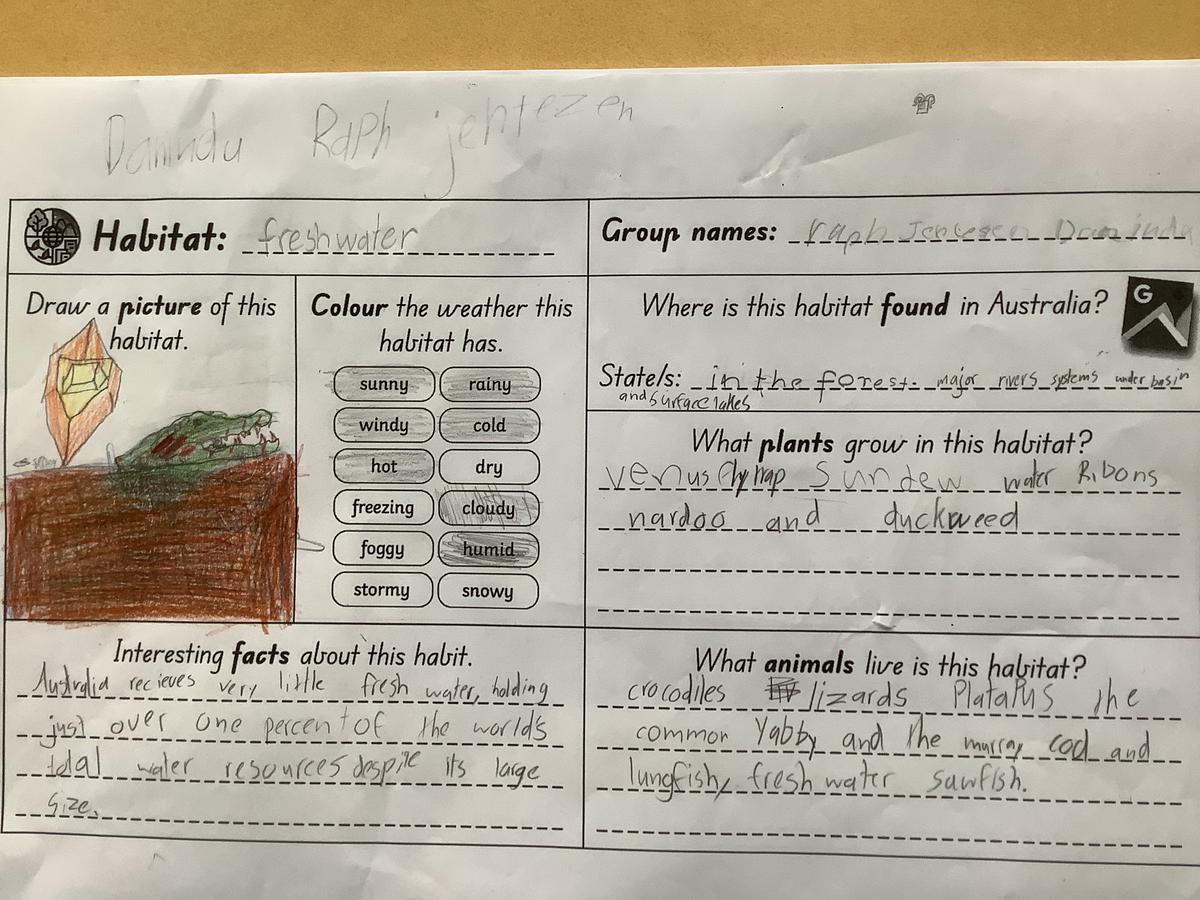 Danindu Raph jentezen
Habitat: freshwater
Group names: raph Jentesen Danindu
Draw a picture of this
habitat.
Colour the weather this
habitat has.
sunny rainy
windy cold
hot dry
freezing cloudy
foggy humid
stormy snowy
Where is this habitat found in Australia?
G
State/s: in the forest. major rivers systems under basin
and surface lakes
What plants grow in this habitat?
venus fly trap Sundew water Ribons
nardoo and duckweed
Interesting facts about this habit.
Australia recieves very little fresh water, holding
just over one percent of the world's
total water resources despite its large
size.
What animals live is this habitat?
crocodiles lizards Platapus the
common Yabby and the murray cod and
lungfish, fresh water sawfish.